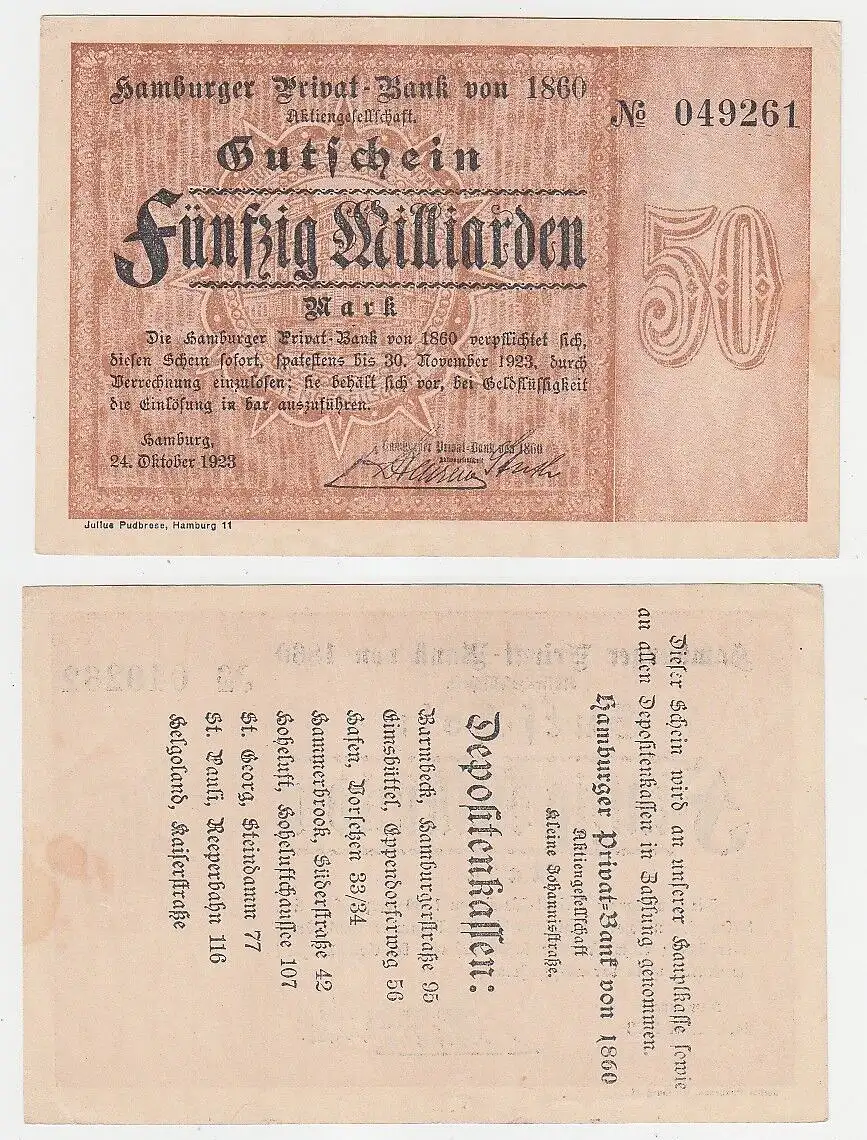 Hamburger Privat-Bank von 1860
Aktiengesellschaft.
Gutschein
Fünfzig Milliarden
Mark
Die Hamburger Privat-Bank von 1860 verpflichtet sich,
diesen Schein sofort, spätestens bis 30. November 1923, durch
Verrechnung einzulösen; sie behält sich vor, bei Geldflüssigkeit
die Einlösung in bar auszuführen.
Hamburg,
24. Oktober 1923
Hamburger Privat-Bank von 1860
Aktiengesellschaft
№ 049261
50
Julius Pudbrese, Hamburg 11
Dieser Schein wird an unserer Hauptkasse sowie
an allen Depositenkassen in Zahlung genommen.
Hamburger Privat-Bank von 1860
Aktiengesellschaft
Kleine Johannisstraße.
Depositenkassen:
Barmbeck, Hamburgerstraße 95
Eimsbüttel, Eppendorferweg 56
Hafen, Vorsetzen 33/34
Hammerbrook, Süderstraße 42
Hoheluft, Hoheluftchaussee 107
St. Georg, Steindamm 77
St. Pauli, Reeperbahn 116
Helgoland, Kaiserstraße